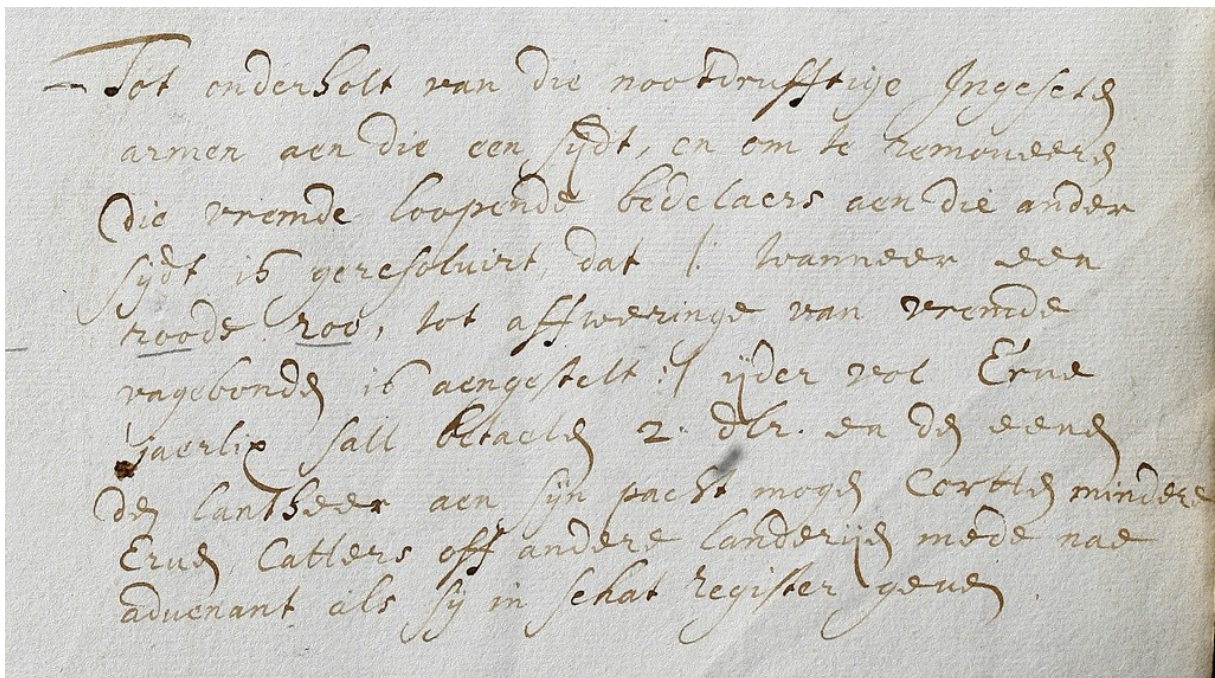 Tot onderholt van die nootdrufftige Ingeseten
armen aen die een sydt, en om te removeeren
die vremde loopende bedelaers aen die ander
sydt is geresolvirt, dat /: wanneer een
roode roo, tot affweringe van vremde
vagebonden is aengestelt :/ ijder vol Erve
jaerlix sall betaelen 2. dlr. en den eenen
den lantheer aen syn pacht mogen Cortten mindere
Erven, Catters off andere landerijen mede nae
advenant als sy in schat register geven